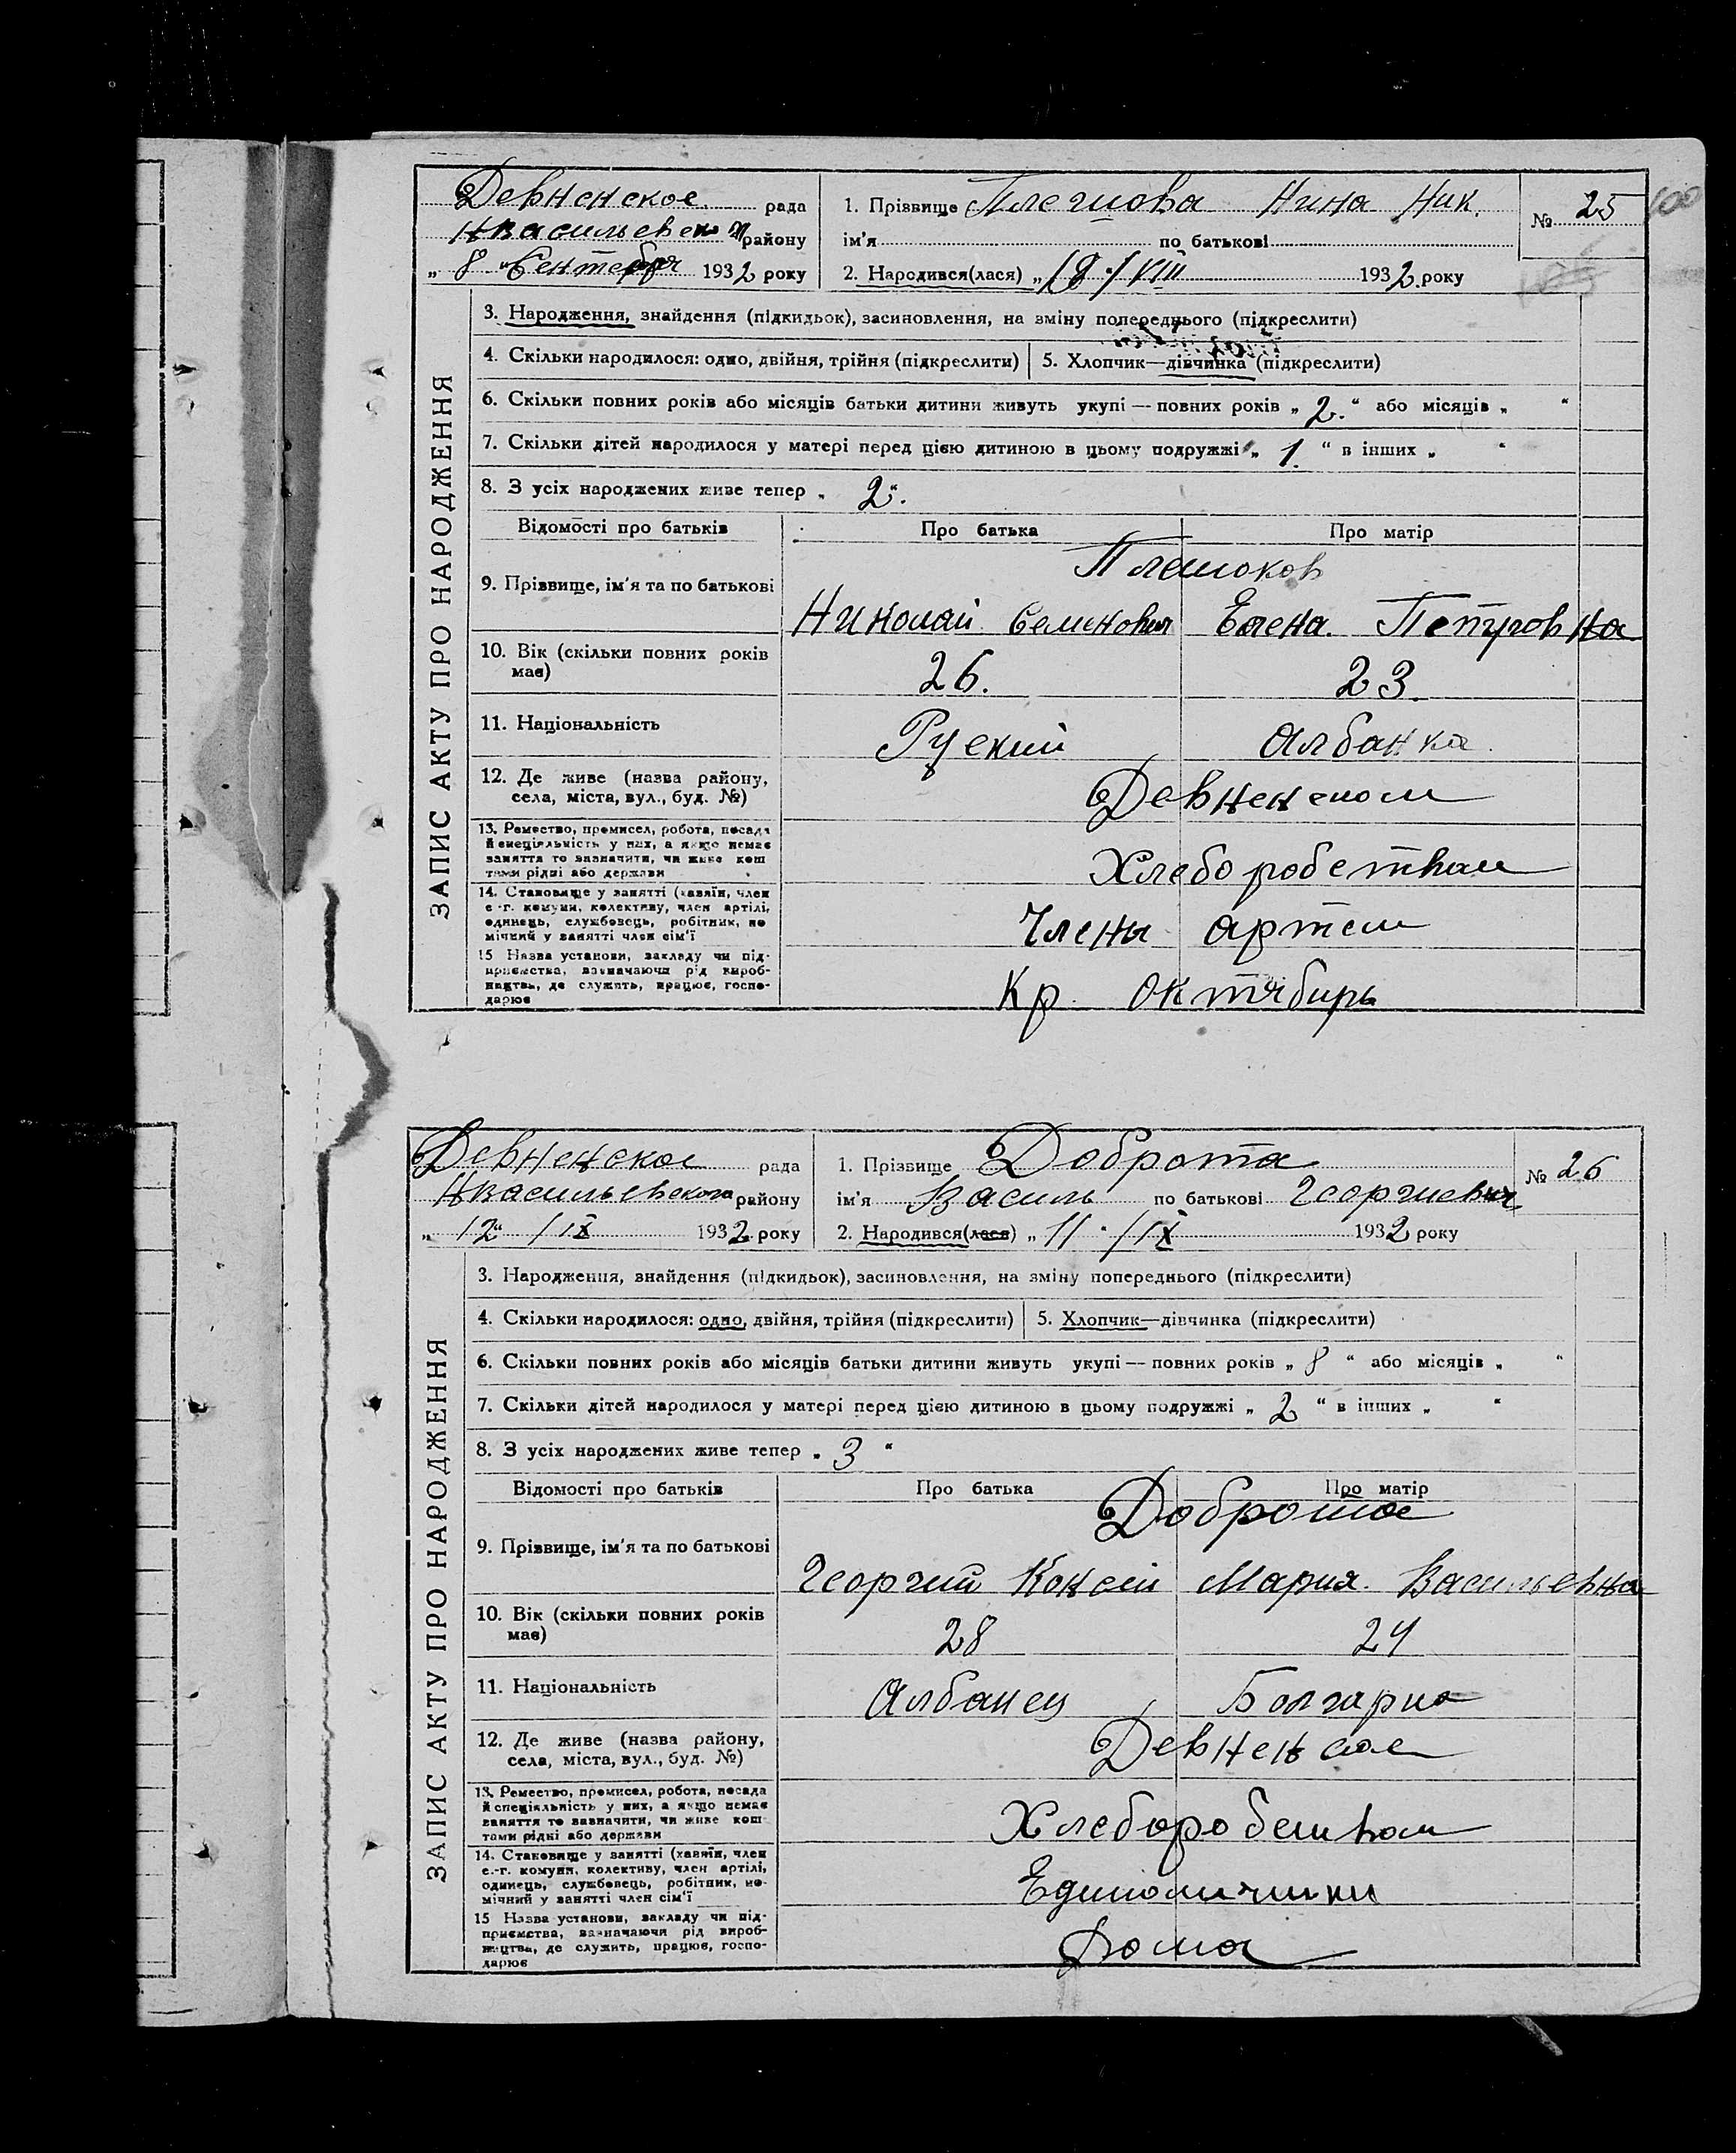 ЗАПИС АКТУ ПРО НАРОДЖЕННЯ
Девненское рада
Нвасильевског району
„ 8 " Сентебря 1932 року
1. Прізвище Плешкова Нина Ник.
ім'я по батькові
№ 25
100
2. Народився(лася) „18"/VIII 1932 року
3. Народження, знайдення (підкидьок), засиновлення, на зміну попереднього (підкреслити)
4. Скільки народилося: одно, двійня, трійня (підкреслити) 5. Хлопчик—дівчинка (підкреслити)
6. Скільки повних років або місяців батьки дитини живуть укупі — повних років „ 2. " або місяців „ "
7. Скільки дітей народилося у матері перед цією дитиною в цьому подружжі „ 1. " в інших „ "
8. З усіх народжених живе тепер „ 2".
Відомості про батьків Про батька Про матір
9. Прізвище, ім'я та по батькові
Николай Семенович Елена Петровна
10. Вік (скільки повних років має) 26. 23.
11. Національність Руский Албанка
12. Де живе (назва району, села, міста, вул., буд. №) Девненском
13. Ремество, промисел, робота, посада й спеціяльність у них, а якщо немає заняття то зазначити, чи живе коштами рідні або держави
Хлеборобством
14. Становище у занятті (хазяїн, член с.-г. комуни, колективу, член артілі, одинець, службовець, робітник, помічний у занятті член сім'ї
Члены артели
15 Назва установи, закладу чи підприємства, зазначаючи рід виробництва, де служить, працює, господарює
Кр. Октябирь
ЗАПИС АКТУ ПРО НАРОДЖЕННЯ
Девненское рада
Нвасильевского району
„ 12" /IX 1932 року
1. Прізвище Доброта
ім'я Василь по батькові Георгиевич
№ 26
2. Народився(лася) „ 11 "/IX 1932 року
3. Народження, знайдення (підкидьок), засиновлення, на зміну попереднього (підкреслити)
4. Скільки народилося: одно, двійня, трійня (підкреслити) 5. Хлопчик—дівчинка (підкреслити)
6. Скільки повних років або місяців батьки дитини живуть укупі — повних років „ 8 " або місяців „ "
7. Скільки дітей народилося у матері перед цією дитиною в цьому подружжі „ 2 " в інших „ "
8. З усіх народжених живе тепер „ 3 "
Відомості про батьків Про батька Про матір
Доброта
9. Прізвище, ім'я та по батькові
Георгий Мария Васильевна
10. Вік (скільки повних років має) 28 24
11. Національність Албанец Болгарка
12. Де живе (назва району, села, міста, вул., буд. №) Девненское
13. Ремество, промисел, робота, посада й спеціяльність у них, а якщо немає заняття то зазначити, чи живе коштами рідні або держави
Хлеборобством
14. Становище у занятті (хазяїн, член с.-г. комуни, колективу, член артілі, одинець, службовець, робітник, помічний у занятті член сім'ї
Единоличники
15 Назва установи, закладу чи підприємства, зазначаючи рід виробництва, де служить, працює, господарює
Дома